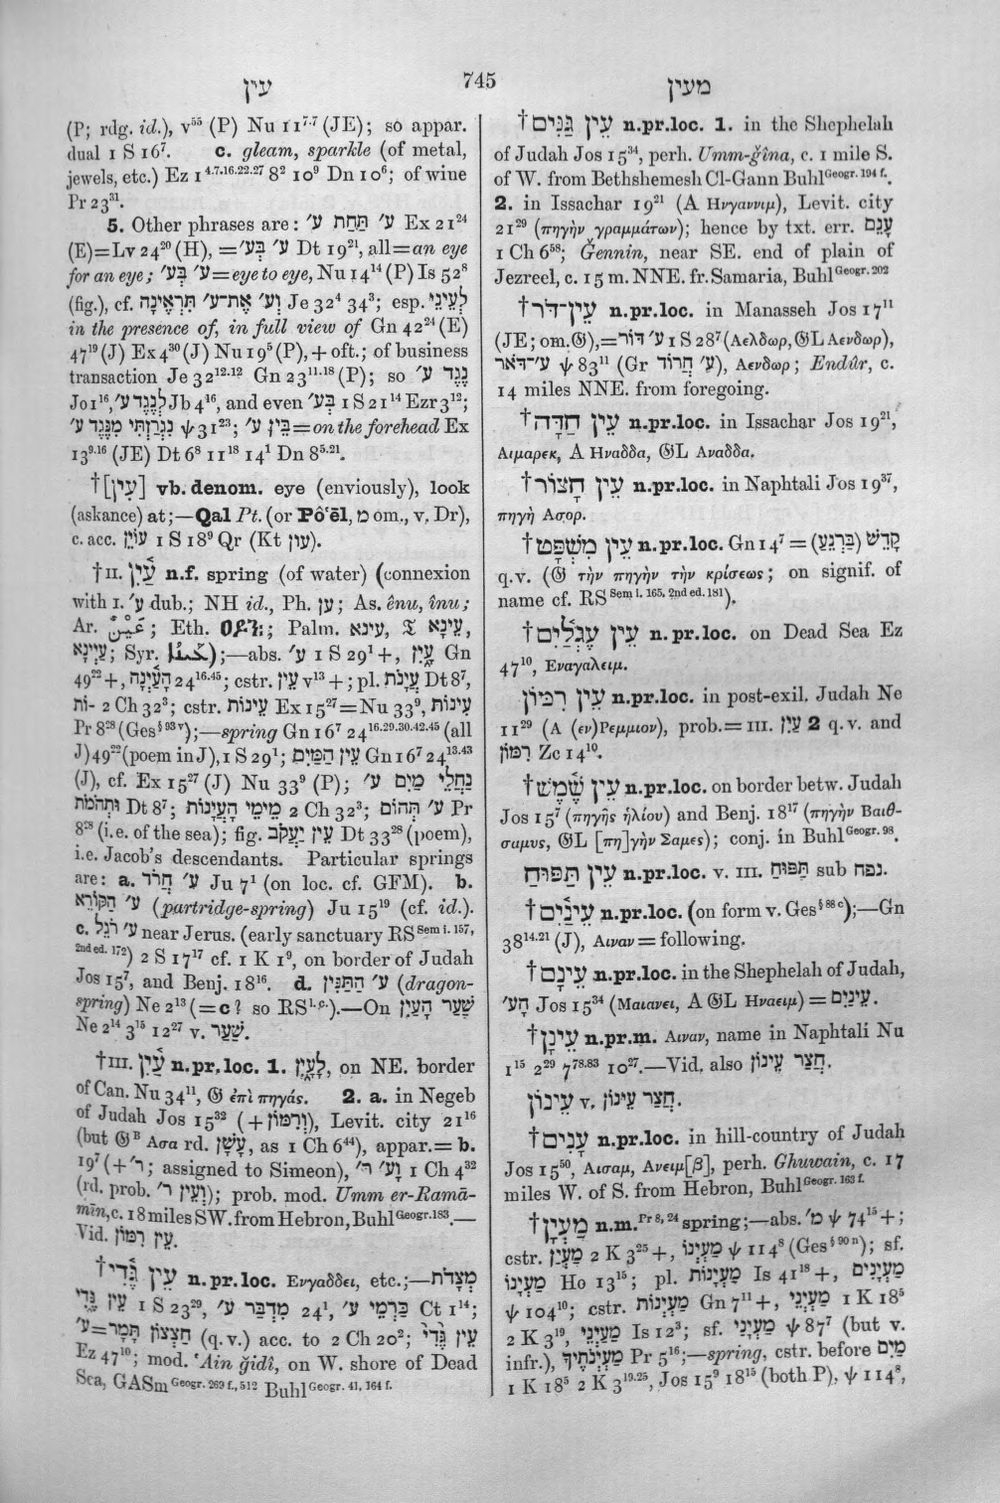 עין
745
מעין
(P; rdg. id.), v⁵⁵ (P) Nu 11⁷·⁷ (JE); so appar.
dual 1 S 16⁷. c. gleam, sparkle (of metal,
jewels, etc.) Ez 1⁴·⁷·¹⁶·²²·²⁷ 8² 10⁹ Dn 10⁶; of wine
Pr 23³¹.
5. Other phrases are: ע׳ תַּחַת ע׳ Ex 21²⁴
(E)=Lv 24²⁰ (H), =ע׳ בְּע׳ Dt 19²¹, all=an eye
for an eye; ע׳ בְּע׳=eye to eye, Nu 14¹⁴ (P) Is 52⁸
(fig.), cf. וְע׳ אֶת־ע׳ תִּרְאֶינָה Je 32⁴ 34³; esp. לְעֵינֵי
in the presence of, in full view of Gn 42²⁴ (E)
47¹⁹ (J) Ex 4³⁰ (J) Nu 19⁵ (P), + oft.; of business
transaction Je 32¹²·¹² Gn 23¹¹·¹⁸ (P); so נֶגֶד ע׳
Jo 1¹⁶, לְנֶגֶד ע׳ Jb 4¹⁶, and even בְּע׳ 1 S 21¹⁴ Ezr 3¹²;
נִגְרַזְתִּי מִנֶּגֶד ע׳ ψ 31²³; בֵּין ע׳=on the forehead Ex
13⁹·¹⁶ (JE) Dt 6⁸ 11¹⁸ 14¹ Dn 8⁵·²¹.
†[עִין] vb. denom. eye (enviously), look
(askance) at;—Qal Pt. (or Pô‘ēl, מ om., v. Dr),
c. acc. עוֹיֵן 1 S 18⁹ Qr (Kt עון).
†II. עַ֫יִן n.f. spring (of water) (connexion
with I. ע׳ dub.; NH id., Ph. ען; As. ênu, înu;
Ar. عَيْنٌ; Eth. ዐይን፡; Palm. עינא, 𝔗 עֵינָא,
עֵיינָא; Syr. ܥܝܢܐ);—abs. ע׳ 1 S 29¹ +, עָ֑יִן Gn
49²² +, הָעַ֫יְנָה 24¹⁶·⁴⁵; cstr. עֵין v¹³ +; pl. עֲיָנֹת Dt 8⁷,
־נוֹת 2 Ch 32³; cstr. עֵינוֹת Ex 15²⁷=Nu 33⁹, עִינוֹת
Pr 8²⁸ (Ges§ 93 v);—spring Gn 16⁷ 24¹⁶·²⁹·³⁰·⁴²·⁴⁵ (all
J) 49²² (poem in J), 1 S 29¹; עֵין הַמַּיִם Gn 16⁷ 24¹³·⁴³
(J), cf. Ex 15²⁷ (J) Nu 33⁹ (P); נַחֲלֵי מַיִם ע׳
וּתְהֹמֹת Dt 8⁷; מֵימֵי הָעֲיָנוֹת 2 Ch 32³; ע׳ תְּהוֹם Pr
8²⁸ (i.e. of the sea); fig. עֵין יַעֲקֹב Dt 33²⁸ (poem),
i.e. Jacob’s descendants. Particular springs
are: a. ע׳ חֲרֹד Ju 7¹ (on loc. cf. GFM). b.
ע׳ הַקּוֹרֵא (partridge-spring) Ju 15¹⁹ (cf. id.).
c. ע׳ רֹגֵל near Jerus. (early sanctuary RS Sem i. 157,
2nd ed. 172) 2 S 17¹⁷ cf. 1 K 1⁹, on border of Judah
Jos 15⁷, and Benj. 18¹⁶. d. ע׳ הַתַּנִּין (dragon-
spring) Ne 2¹³ (=c? so RS l.c.).—On שַׁעַר הָעַיִן
Ne 2¹⁴ 3¹⁵ 12²⁷ v. שַׁעַר.
†III. עַ֫יִן n.pr.loc. 1. לָעָ֑יִן, on NE. border
of Can. Nu 34¹¹, 𝔊 ἐπὶ πηγάς. 2. a. in Negeb
of Judah Jos 15³² (+ וְרִמּוֹן), Levit. city 21¹⁶
(but 𝔊ᴮ Ασα rd. עָשָׁן, as 1 Ch 6⁴⁴), appar.= b.
19⁷ (+ ר׳; assigned to Simeon), וְע׳ ר׳ 1 Ch 4³²
(rd. prob. וְעֵין ר׳); prob. mod. Umm er-Ramā-
mīn, c. 18 miles SW. from Hebron, Buhl Geogr. 183.—
Vid. עֵין רִמּוֹן.
†עֵין גֶּ֫דִי n.pr.loc. Ενγαδδει, etc.;—מְצָדֹת
עֵין גֶּדִי 1 S 23²⁹, מִדְבַּר ע׳ 24¹, כַּרְמֵי ע׳ Ct 1¹⁴;
ע׳=חַצְצוֹן תָּמָר (q.v.) acc. to 2 Ch 20²; עֵין גֶּ֫דִי
Ez 47¹⁰; mod. ‘Ain ǧidî, on W. shore of Dead
Sea, GASm Geogr. 269 f., 512 Buhl Geogr. 41, 164 f.
†עֵין גַּנִּים n.pr.loc. 1. in the Shephelah
of Judah Jos 15³⁴, perh. Umm-ǧîna, c. 1 mile S.
of W. from Bethshemesh Cl-Gann Buhl Geogr. 194 f.
2. in Issachar 19²¹ (A Ηνγαννιμ), Levit. city
21²⁹ (πηγὴν γραμμάτων); hence by txt. err. עָנֵם
1 Ch 6⁵⁸; Ǧennin, near SE. end of plain of
Jezreel, c. 15 m. NNE. fr. Samaria, Buhl Geogr. 202
†עֵין־דֹּר n.pr.loc. in Manasseh Jos 17¹¹
(JE; om. 𝔊),=ע׳ דּוֹר 1 S 28⁷ (Αελδωρ, 𝔊L Αενδωρ),
ע׳־דֹּאר ψ 83¹¹ (Gr ע׳ חֲרוֹד), Αενδωρ; Endûr, c.
14 miles NNE. from foregoing.
†עֵין חַדָּה n.pr.loc. in Issachar Jos 19²¹,
Αιμαρεκ, A Ηναδδα, 𝔊L Αναδδα.
†עֵין חָצוֹר n.pr.loc. in Naphtali Jos 19³⁷,
πηγὴ Ασορ.
†עֵין מִשְׁפָּט n.pr.loc. Gn 14⁷ = קָדֵשׁ (בַּרְנֵעַ)
q.v. (𝔊 τὴν πηγὴν τὴν κρίσεως; on signif. of
name cf. RS Sem i. 165, 2nd ed. 181).
†עֵין עֶגְלַיִם n.pr.loc. on Dead Sea Ez
47¹⁰, Εναγαλειμ.
עֵין רִמּוֹן n.pr.loc. in post-exil. Judah Ne
11²⁹ (A (εν)Ρεμμιον), prob.= III. עַיִן 2 q.v. and
רִמּוֹן Zc 14¹⁰.
†עֵין שֶׁ֫מֶשׁ n.pr.loc. on border betw. Judah
Jos 15⁷ (πηγῆς ἡλίου) and Benj. 18¹⁷ (πηγὴν Βαιθ-
σαμυς, 𝔊L [πη]γὴν Σαμες); conj. in Buhl Geogr. 98.
עֵין תַּפּוּחַ n.pr.loc. v. III. תַּפּוּחַ sub נפח.
†עֵינַ֫יִם n.pr.loc. (on form v. Ges§ 88 c);—Gn
38¹⁴·²¹ (J), Αιναν = following.
†עֵינָם n.pr.loc. in the Shephelah of Judah,
הָע׳ Jos 15³⁴ (Μαιανει, A 𝔊L Ηναειμ) = עֵינַיִם.
†עֵינָן n.pr.m. Αιναν, name in Naphtali Nu
1¹⁵ 2²⁹ 7⁷⁸·⁸³ 10²⁷.—Vid. also חֲצַר עֵינוֹן.
עֵינוֹן v. חֲצַר עֵינוֹן.
†עָנִים n.pr.loc. in hill-country of Judah
Jos 15⁵⁰, Αισαμ, Ανειμ[β], perh. Ghuwain, c. 17
miles W. of S. from Hebron, Buhl Geogr. 163 f.
†מַעְיָן n.m. Pr 8, 24 spring;—abs. מ׳ ψ 74¹⁵ +;
cstr. מַעְיַן 2 K 3²⁵ +, מַעְיְנוֹ ψ 114⁸ (Ges§ 90 n); sf.
מַעְיָנוֹ Ho 13¹⁵; pl. מַעְיָנוֹת Is 41¹⁸ +, מַעְיָנִים
ψ 104¹⁰; cstr. מַעְיְנוֹת Gn 7¹¹ +, מַעְיְנֵי 1 K 18⁵
2 K 3¹⁹, מַעַיְנֵי Is 12³; sf. מַעְיָנַי ψ 87⁷ (but v.
infr.), מַעְיְנֹתֶיךָ Pr 5¹⁶;—spring, cstr. before מַיִם
1 K 18⁵ 2 K 3¹⁹·²⁵, Jos 15⁹ 18¹⁵ (both P), ψ 114⁸,